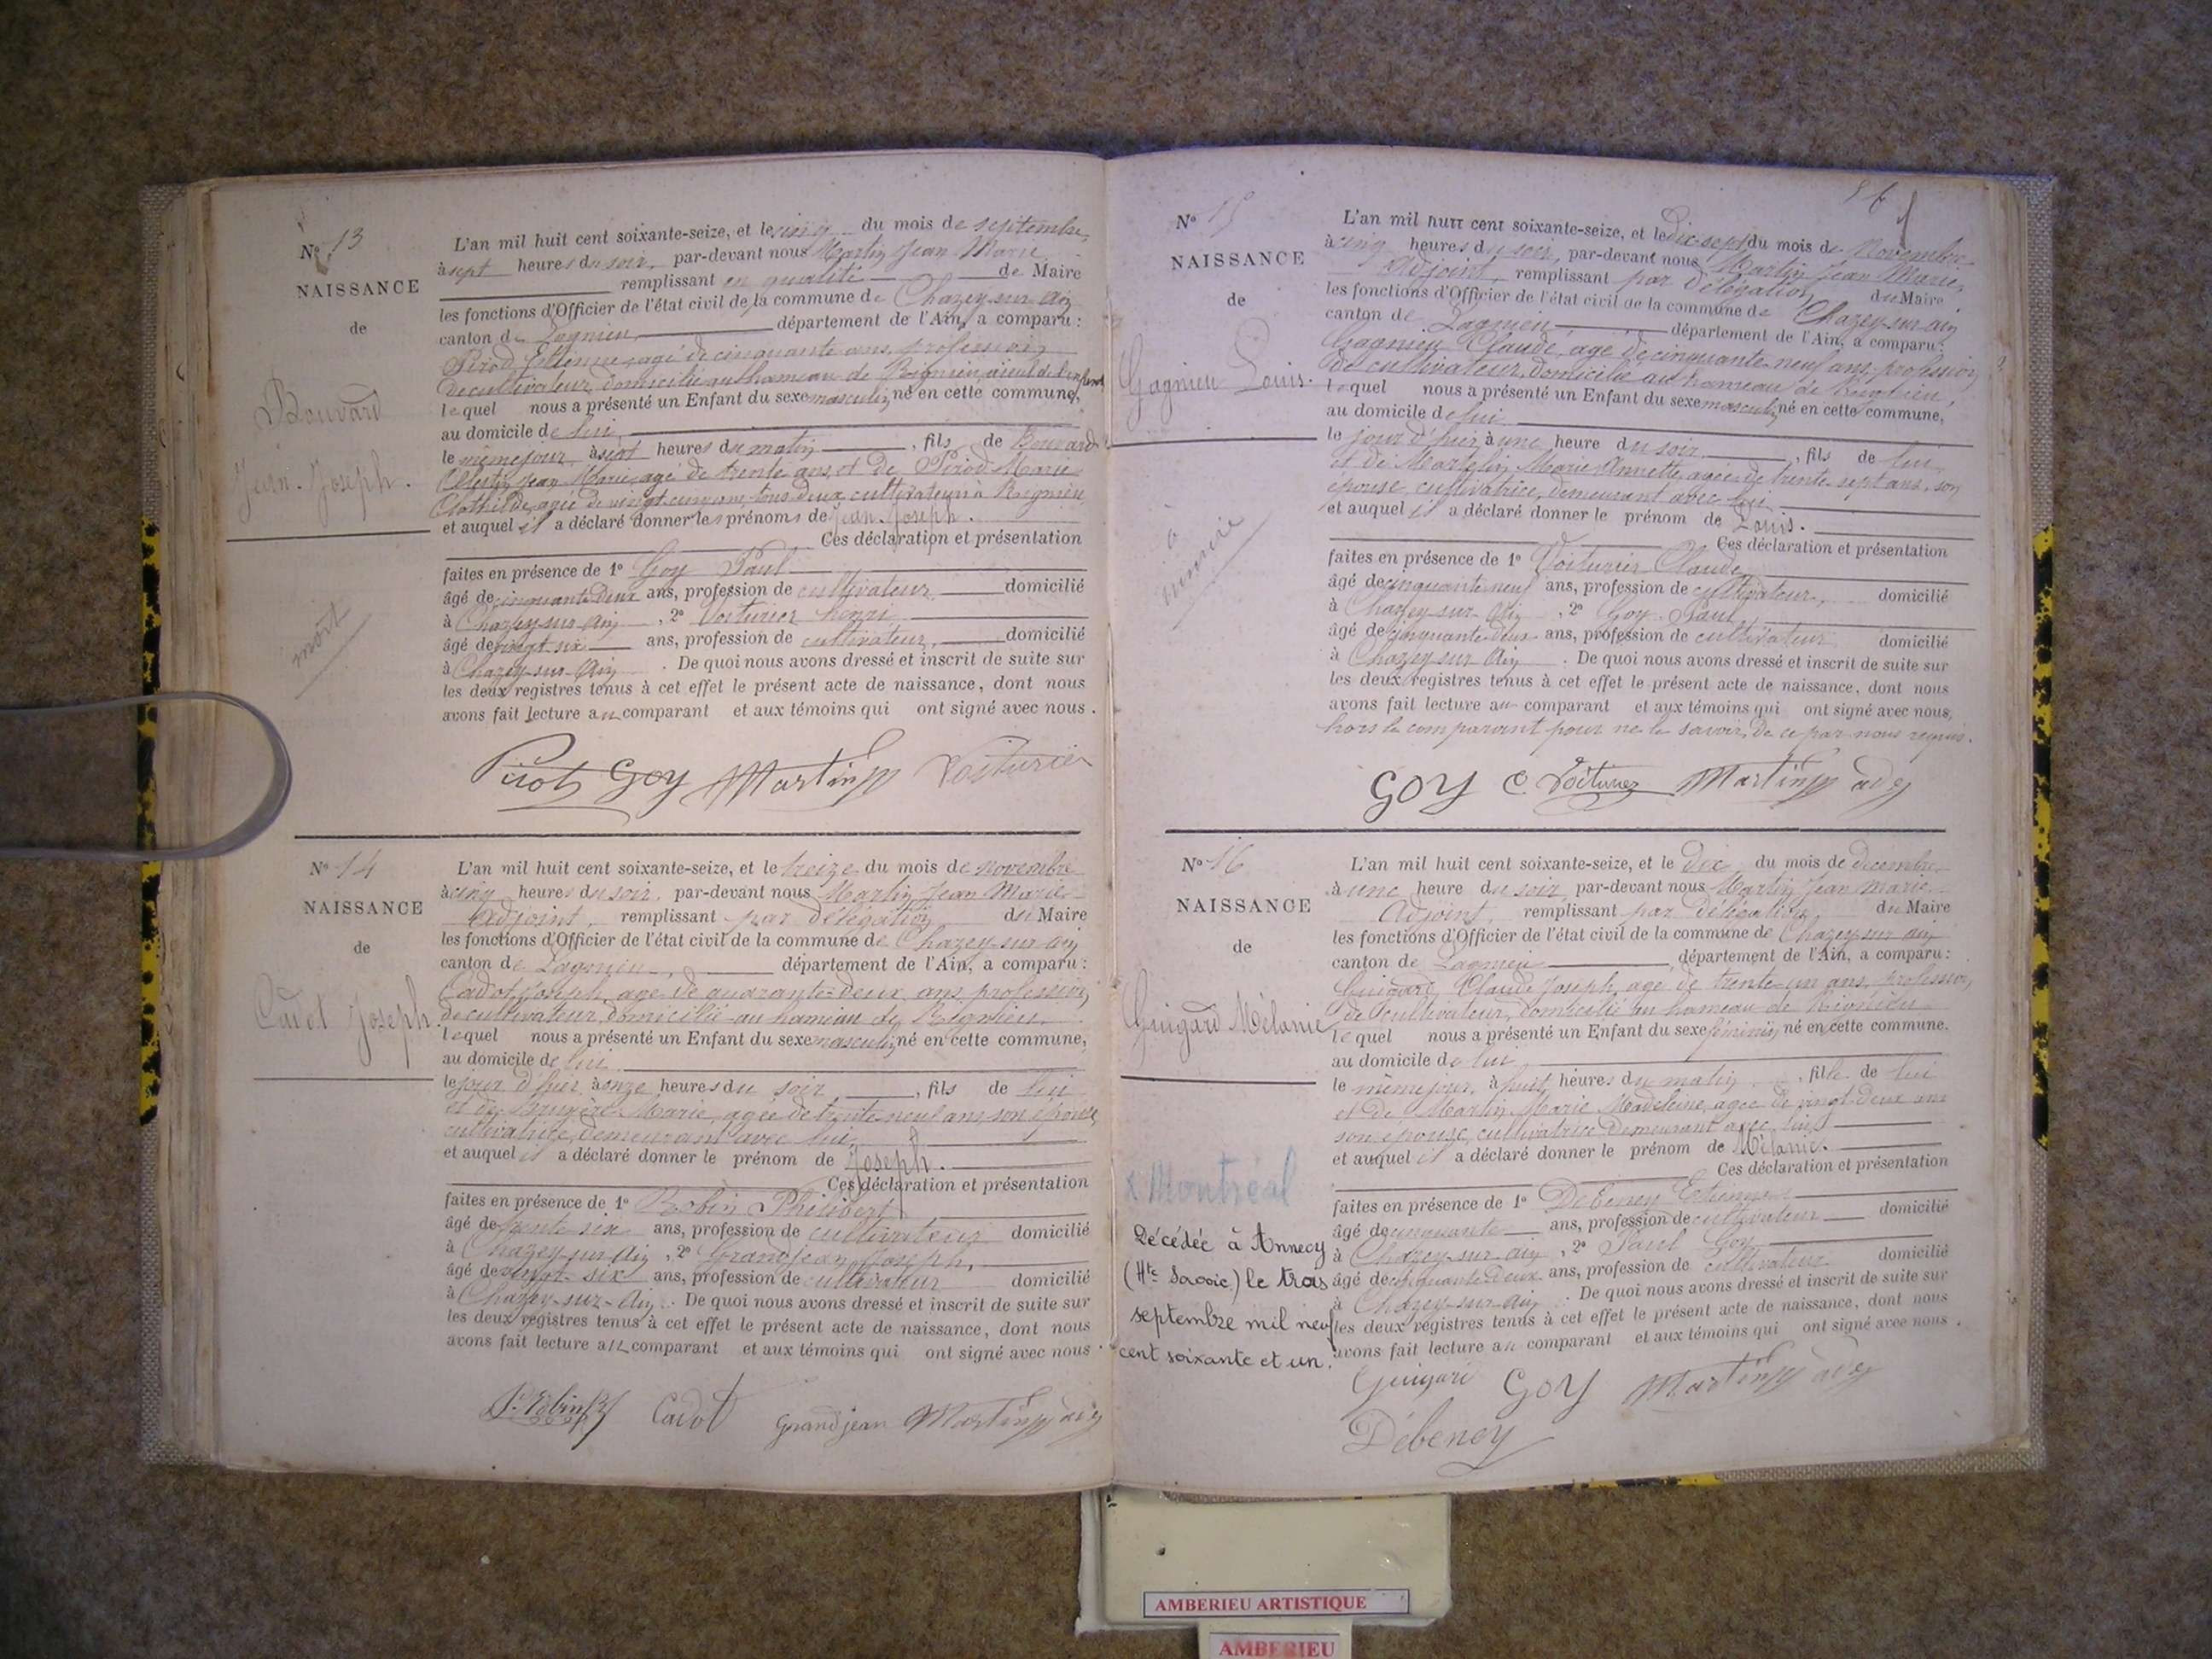 Nº 13
NAISSANCE
de
Bouvard
Jean-Joseph.
mort
L'an mil huit cent soixante-seize, et le cinq du mois de septembre,
à sept heures du soir, par-devant nous Martin Jean Marie
remplissant en qualité de Maire
les fonctions d'Officier de l'état civil de la commune de Chazey-sur-Ain
canton de Lagnieu département de l'Ain, a comparu :
Pirod Etienne, agé de cinquante ans, profession
de cultivateur, domicilié au hameau de Rignieu, aïeul de l'enfant
lequel nous a présenté un Enfant du sexe masculin né en cette commune,
au domicile de lui
le même jour, à sept heures du matin, fils de Bouvard
Célestin Jean Marie, agé de trente ans, et de Pirod Marie
Clothilde, agée de vingt cinq ans, tous deux cultivateurs à Rignieu
et auquel il a déclaré donner les prénoms de Jean-Joseph.
Ces déclaration et présentation
faites en présence de 1º Goy Paul
âgé de cinquante deux ans, profession de cultivateur, domicilié
à Chazey-sur-Ain, 2º Voiturier henri
âgé de vingt six ans, profession de cultivateur, domicilié
à Chazey-sur-Ain. De quoi nous avons dressé et inscrit de suite sur
les deux registres tenus à cet effet le présent acte de naissance, dont nous
avons fait lecture au comparant et aux témoins qui ont signé avec nous.
Goy Martin Voiturier
Nº 14
NAISSANCE
de
Cadot Joseph.
L'an mil huit cent soixante-seize, et le treize du mois de novembre
à cinq heures du soir, par-devant nous Martin Jean Marie
Adjoint, remplissant par délégation du Maire
les fonctions d'Officier de l'état civil de la commune de Chazey-sur-Ain
canton de Lagnieu, département de l'Ain, a comparu :
Cadot Joseph, agé de quarante-deux ans, profession
de cultivateur, domicilié au hameau de Rignieu.
lequel nous a présenté un Enfant du sexe masculin né en cette commune,
au domicile de lui
le jour d'hier, à onze heures du soir, fils de lui
et de Bruyère Marie, agée de trente neuf ans, son épouse,
cultivatrice, demeurant avec lui
et auquel il a déclaré donner le prénom de Joseph.
Ces déclaration et présentation
faites en présence de 1º Robin Philibert
âgé de trente six ans, profession de cultivateur domicilié
à Chazey-sur-Ain, 2º Grandjean Joseph,
âgé de vingt-six ans, profession de cultivateur domicilié
à Chazey-sur-Ain. De quoi nous avons dressé et inscrit de suite sur
les deux registres tenus à cet effet le présent acte de naissance, dont nous
avons fait lecture au comparant et aux témoins qui ont signé avec nous.
P. Robin Cadot Grandjean Martin adj
Nº 15
NAISSANCE
de
Gagnieu Louis.
à
L'an mil huit cent soixante-seize, et le dix-sept du mois de Novembre
à cinq heures du soir, par-devant nous Martin Jean Marie,
Adjoint, remplissant par délégation, du Maire
les fonctions d'Officier de l'état civil de la commune de Chazey-sur-Ain
canton de Lagnieu, département de l'Ain, a comparu :
Gagnieu Claude, agé de cinquante-neuf ans, profession
de cultivateur, domicilié au hameau de Rignieu,
lequel nous a présenté un Enfant du sexe masculin né en cette commune,
au domicile de lui
le jour d'hier, à une heure du soir, fils de lui
et de Martelin Marie Annette, agée de trente-sept ans, son
épouse, cultivatrice, demeurant avec lui
et auquel il a déclaré donner le prénom de Louis.
Ces déclaration et présentation
faites en présence de 1º Voiturier Claude
âgé de cinquante neuf ans, profession de cultivateur, domicilié
à Chazey-sur-Ain, 2º Goy Paul
âgé de cinquante-deux ans, profession de cultivateur domicilié
à Chazey-sur-Ain. De quoi nous avons dressé et inscrit de suite sur
les deux registres tenus à cet effet le présent acte de naissance, dont nous
avons fait lecture au comparant et aux témoins qui ont signé avec nous,
hors le comparant pour ne le savoir, de ce par nous requis.
Goy C. Voiturier Martin adj
Nº 16
NAISSANCE
de
Guigard Mélanie
x Montréal
Décédée à Annecy
(Hte Savoie) le trois
septembre mil neuf
cent soixante et un.
L'an mil huit cent soixante-seize, et le dix du mois de décembre
à une heure du soir, par-devant nous Martin Jean Marie
Adjoint, remplissant par délégation, du Maire
les fonctions d'Officier de l'état civil de la commune de Chazey-sur-Ain
canton de Lagnieu, département de l'Ain, a comparu :
Guigard Claude Joseph, agé de trente-un ans, profession
de cultivateur, domicilié au hameau de Rignieu
lequel nous a présenté un Enfant du sexe féminin né en cette commune.
au domicile de lui
le même jour, à huit heures du matin, fille de lui
et de Martin Marie Madeleine, agée de vingt-deux ans
son épouse, cultivatrice demeurant avec lui
et auquel il a déclaré donner le prénom de Mélanie.
Ces déclaration et présentation
faites en présence de 1º Debeney Etienne
âgé de cinquante ans, profession de cultivateur domicilié
à Chazey-sur-Ain, 2º Paul Goy
âgé de cinquante deux ans, profession de cultivateur domicilié
à Chazey-sur-Ain. De quoi nous avons dressé et inscrit de suite sur
les deux registres tenus à cet effet le présent acte de naissance, dont nous
avons fait lecture au comparant et aux témoins qui ont signé avec nous.
Guigard Goy Martin adj
Débeney
AMBERIEU ARTISTIQUE
AMBERIEU